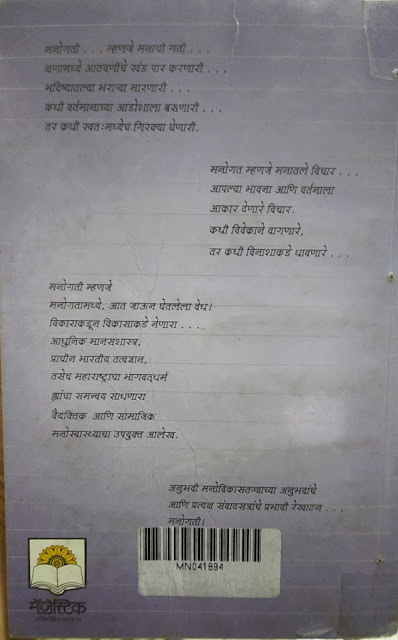 मनोगती . . . म्हणजे मनाची गती . . .
क्षणामध्ये आठवणींचे खंड पार करणारी . . .
भविष्यातल्या भराऱ्या मारणारी . . .
कधी वर्तमानाच्या आडोशाला बसणारी . . .
तर कधी स्वतःमध्येच गिरक्या घेणारी.
मनोगत म्हणजे मनातले विचार . . .
आपल्या भावना आणि वर्तनाला
आकार देणारे विचार.
कधी विवेकाने वागणारे,
तर कधी विनाशाकडे धावणारे . . .
मनोगती म्हणजे
मनोगतामध्ये, आत जाऊन घेतलेला वेध!
विकाराकडून विकासाकडे नेणारा . . . .
आधुनिक मानसशास्त्र,
प्राचीन भारतीय तत्वज्ञान,
तसेच महाराष्ट्राचा भागवतधर्म
ह्यांचा समन्वय साधणारा
वैयक्तिक आणि सामाजिक
मनोस्वास्थ्याचा उपयुक्त आलेख.
अनुभवी मनोविकासतज्ज्ञाच्या अनुभवांचे
आणि प्रत्यक्ष संवादसत्रांचे प्रभावी रेखाटन . . .
मनोगती!
MN041894
मॅजेस्टिक